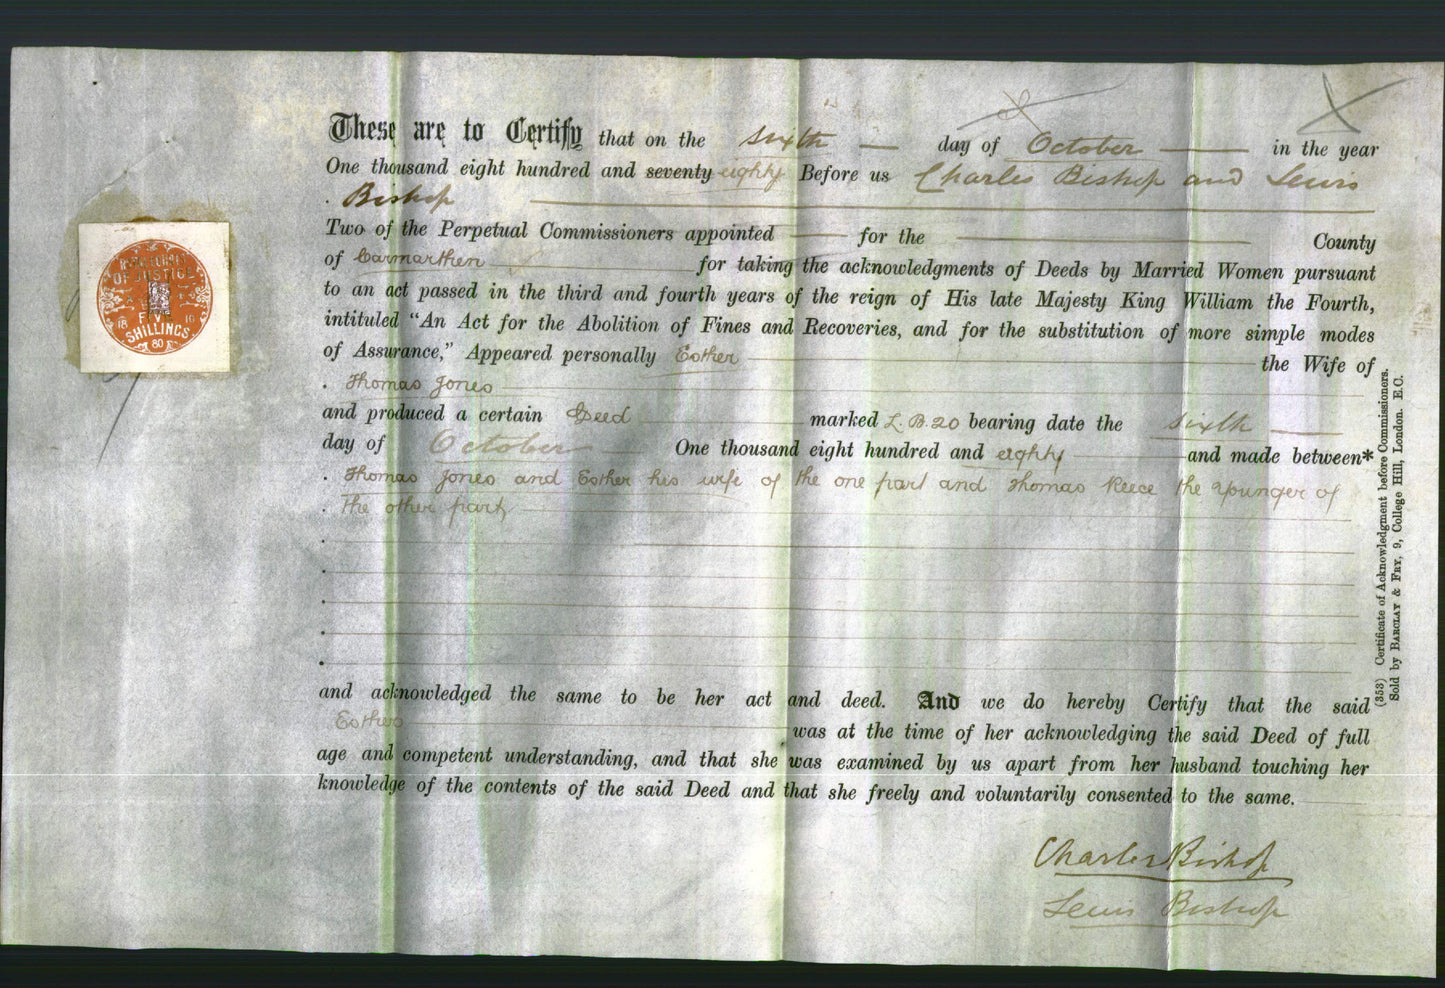 These are to Certify that on the sixth day of October in the year
One thousand eight hundred and seventy eighty Before us Charles Bishop and Lewis
Bishop
Two of the Perpetual Commissioners appointed for the County
of Carmarthen for taking the acknowledgments of Deeds by Married Women pursuant
to an act passed in the third and fourth years of the reign of His late Majesty King William the Fourth,
intituled "An Act for the Abolition of Fines and Recoveries, and for the substitution of more simple modes
of Assurance," Appeared personally Esther the Wife of
Thomas Jones
and produced a certain Deed marked L.B.20 bearing date the sixth
day of October One thousand eight hundred and eighty and made between*
Thomas Jones and Esther his wife of the one part and Thomas Reece the younger of
the other part
and acknowledged the same to be her act and deed. And we do hereby Certify that the said
Esther was at the time of her acknowledging the said Deed of full
age and competent understanding, and that she was examined by us apart from her husband touching her
knowledge of the contents of the said Deed and that she freely and voluntarily consented to the same.
Charles Bishop
Lewis Bishop
(353) Certificate of Acknowledgment before Commissioners.
Sold by BARCLAY & FRY, 9, College Hill, London. E.C.
OF JUSTICE
FIVE
SHILLINGS
80